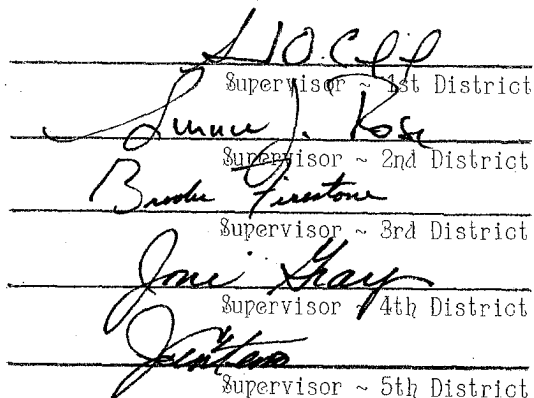 Supervisor ~ 1st District
J. Rose
Supervisor ~ 2nd District
Firestone
Supervisor ~ 3rd District
Joni Gray
Supervisor ~ 4th District
Supervisor ~ 5th District